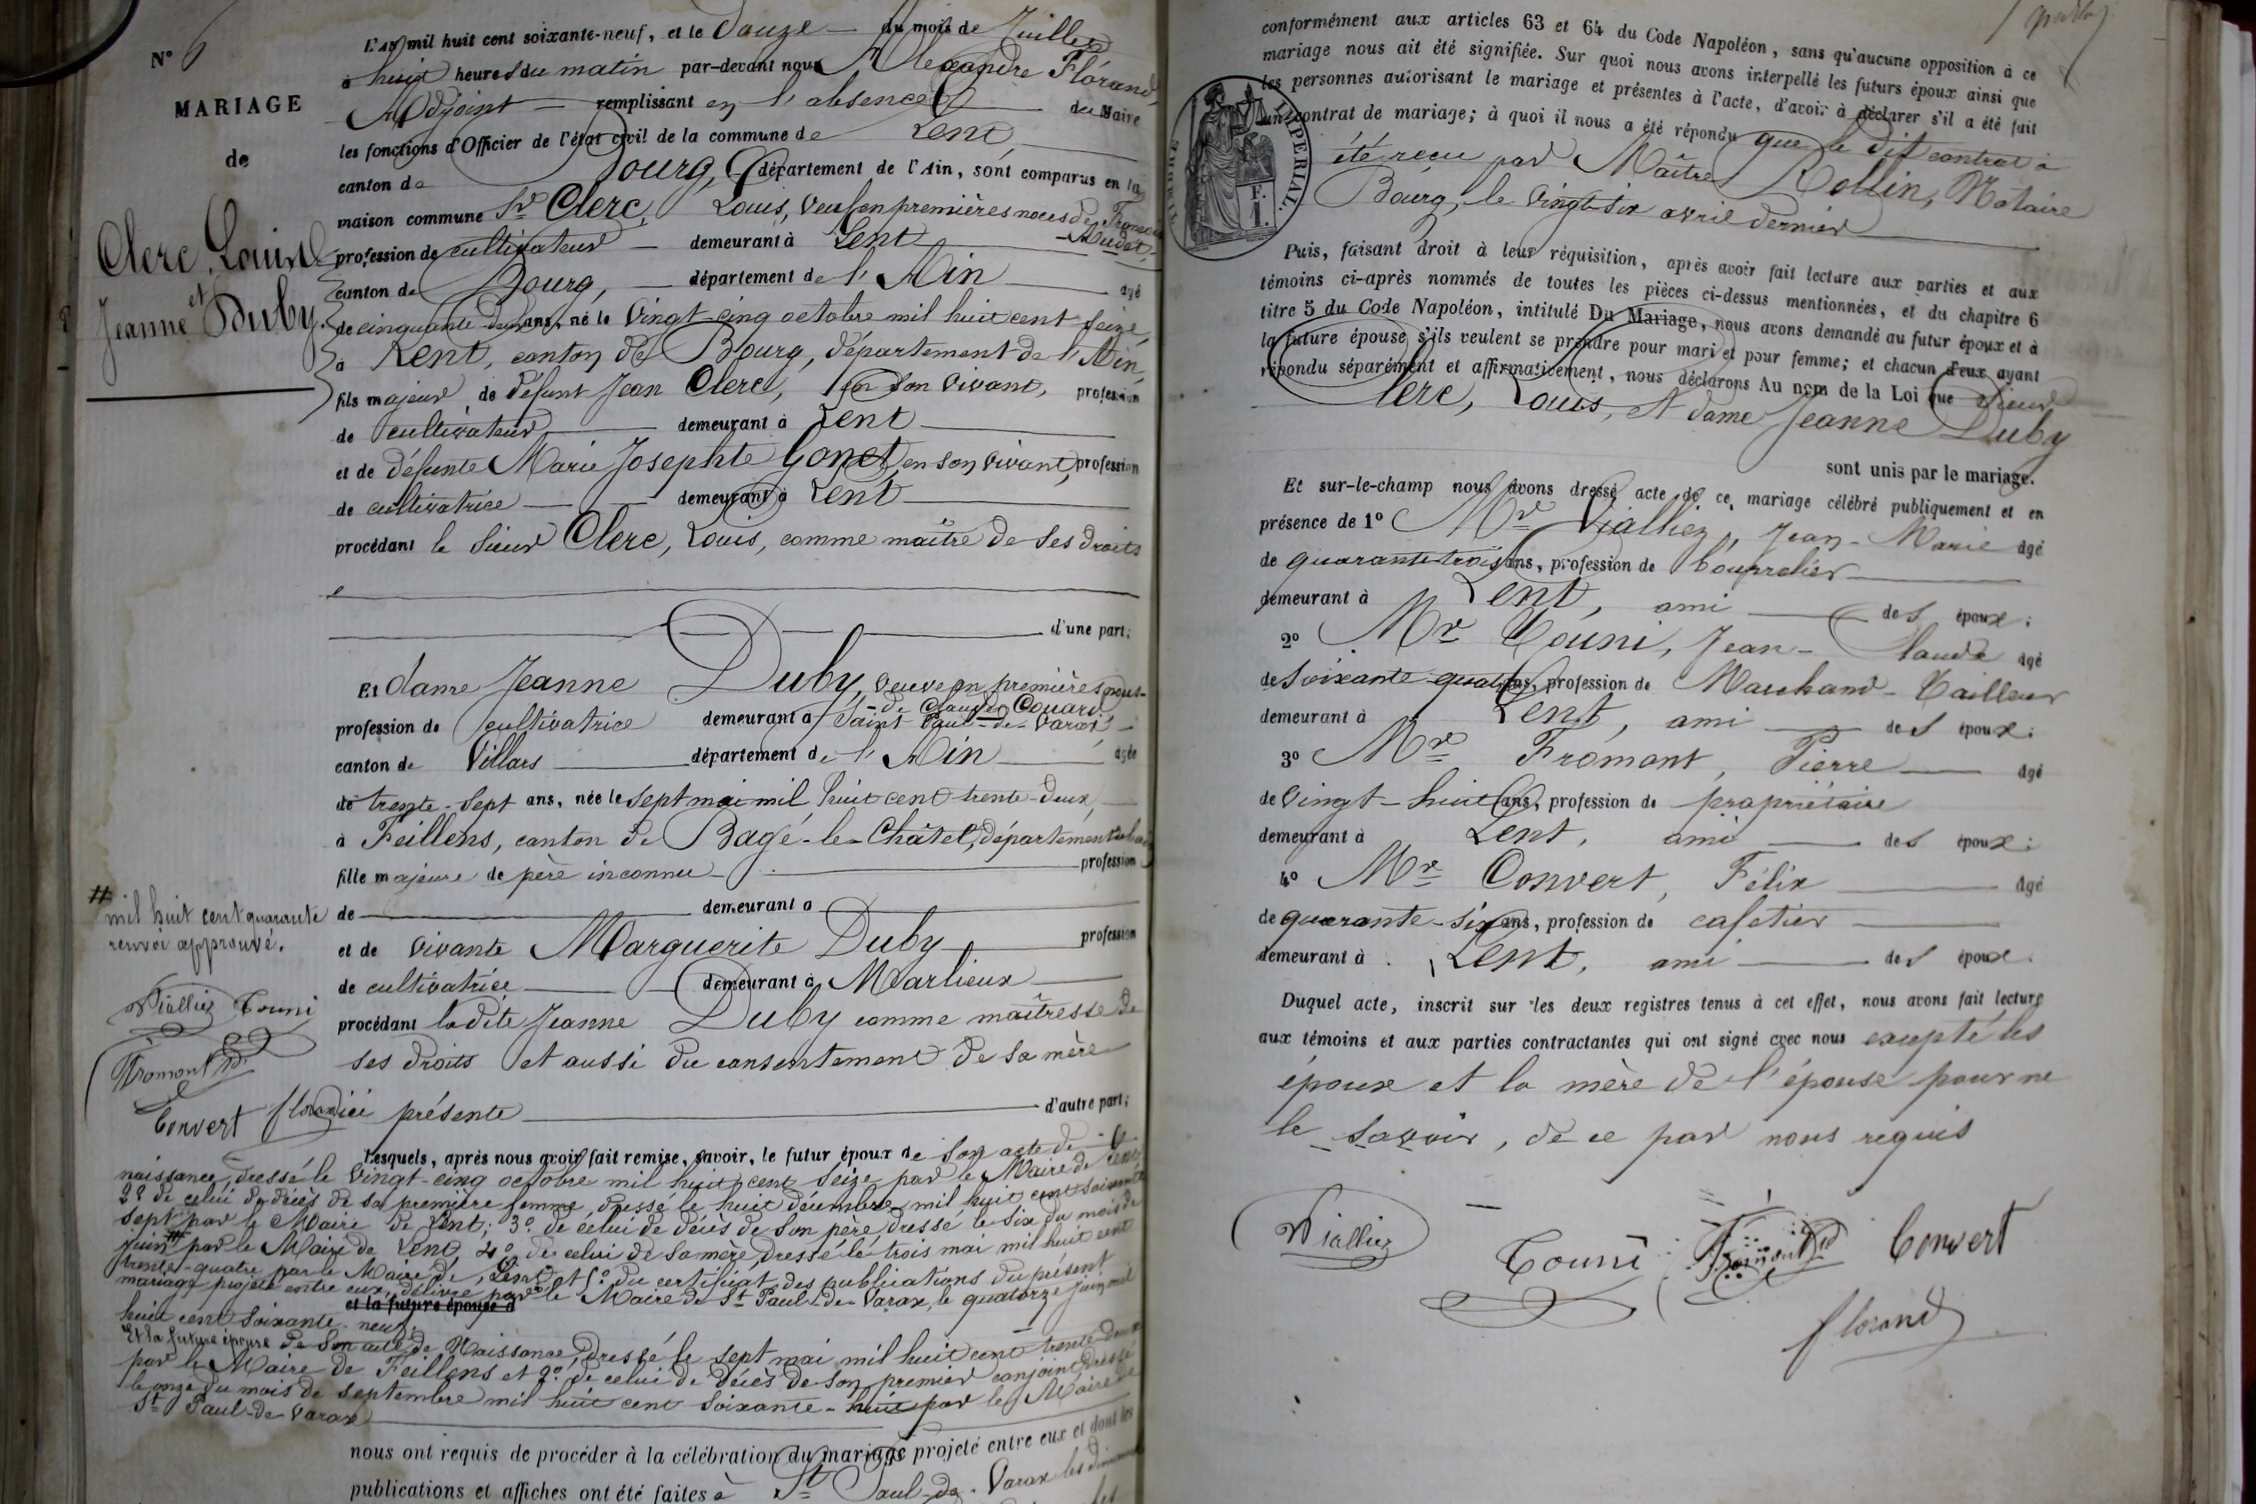 N° 6
MARIAGE
de
Clerc, Louis
et
Jeanne Duby.
L'an mil huit cent soixante-neuf, et le Douze du mois de Juillet
à huit heures du matin par-devant nous Alexandre Florand,
Adjoint remplissant en l'absence du Maire
les fonctions d'Officier de l'état civil de la commune de Lent
canton de Bourg, département de l'Ain, sont comparus en la
maison commune Sr Clerc, Louis, veuf en premières noces de
profession de cultivateur demeurant à Lent
canton de Bourg, département de l'Ain âgé
de cinquante deux ans, né le vingt-cinq octobre mil huit cent seize
à Lent, canton de Bourg, département de l'Ain,
fils majeur de défunt Jean Clerc, en son vivant, profession
de cultivateur demeurant à Lent
et de défunte Marie Josephte Gonet, en son vivant, profession
de cultivatrice demeurant à Lent
procédant le sieur Clerc, Louis, comme maître de ses droits
d'une part;
Et dame Jeanne Duby, veuve en premières noces
de Claude Couard
profession de cultivatrice demeurant à Saint Paul-de-Varax,
canton de Villars département de l'Ain âgée
de trente-sept ans, née le sept mai mil huit cent trente-deux,
à Feillens, canton de Bagé-le-Châtel, département
fille majeure de père inconnu profession
de demeurant à
et de vivante Marguerite Duby profession
de cultivatrice demeurant à Marlieux
procédant ladite Jeanne Duby comme maîtresse de
ses droits et aussi du consentement de sa mère
ici présente d'autre part;
# mil huit cent quarante
renvoi approuvé.
Vialliez Touni
Fromont Pd
Convert florand
Lesquels, après nous avoir fait remise, savoir, le futur époux de son acte de
naissance, dressé le vingt-cinq octobre mil huit cent seize par le Maire de Lent
2° de celui de décès de sa première femme, dressé le huit décembre mil huit cent soixante
sept par le Maire de Lent; 3° de celui de décès de son père, dressé le six du mois de
juin # par le Maire de Lent, 4° de celui de sa mère, dressé le trois mai mil huit cent
trente-quatre par le Maire de Lent et 5° du certificat des publications du présent
mariage projeté entre eux, délivré par le Maire de St Paul-de-Varax, le quatorze juin mil
et la future épouse d
huit cent soixante-neuf;
Et la future épouse de son acte de Naissance, dressé le sept mai mil huit cent trente-deux
par le Maire de Feillens et 2° de celui de décès de son premier conjoint, dressé
le onze du mois de septembre mil huit cent soixante-huit par le Maire de
St Paul-de-Varax
nous ont requis de procéder à la célébration du mariage projeté entre eux et dont les
publications et affiches ont été faites à St Paul-de-Varax les
conformément aux articles 63 et 64 du Code Napoléon, sans qu'aucune opposition à ce
mariage nous ait été signifiée. Sur quoi nous avons interpellé les futurs époux ainsi que
les personnes autorisant le mariage et présentes à l'acte, d'avoir à déclarer s'il a été fait
un contrat de mariage; à quoi il nous a été répondu que le dit contrat a
été reçu par Maître Rollin, Notaire
Bourg, le vingt-six avril dernier
TIMBRE IMPERIAL.
F.
1.
Puis, faisant droit à leur réquisition, après avoir fait lecture aux parties et aux
témoins ci-après nommés de toutes les pièces ci-dessus mentionnées, et du chapitre 6
titre 5 du Code Napoléon, intitulé Du Mariage, nous avons demandé au futur époux et à
la future épouse s'ils veulent se prendre pour mari et pour femme; et chacun d'eux ayant
répondu séparément et affirmativement, nous déclarons Au nom de la Loi que sieur
Clerc, Louis, et dame Jeanne Duby
sont unis par le mariage.
Et sur-le-champ nous avons dressé acte de ce mariage célébré publiquement et en
présence de 1° Mr Vialliez, Jean-Marie âgé
de quarante-trois ans, profession de bourrelier
demeurant à Lent, ami des époux;
2° Mr Touni, Jean-Claude âgé
de soixante-quatre ans, profession de Marchand-Tailleur
demeurant à Lent, ami des époux;
3° Mr Fromont, Pierre âgé
de vingt-huit ans, profession de propriétaire
demeurant à Lent, ami des époux;
4° Mr Convert, Félix âgé
de quarante-six ans, profession de cafetier
demeurant à Lent, ami des époux.
Duquel acte, inscrit sur les deux registres tenus à cet effet, nous avons fait lecture
aux témoins et aux parties contractantes qui ont signé avec nous excepté les
époux et la mère de l'épouse pour ne
le savoir, de ce par nous requis
Vialliez
Touni Fromont Pd Convert
florand